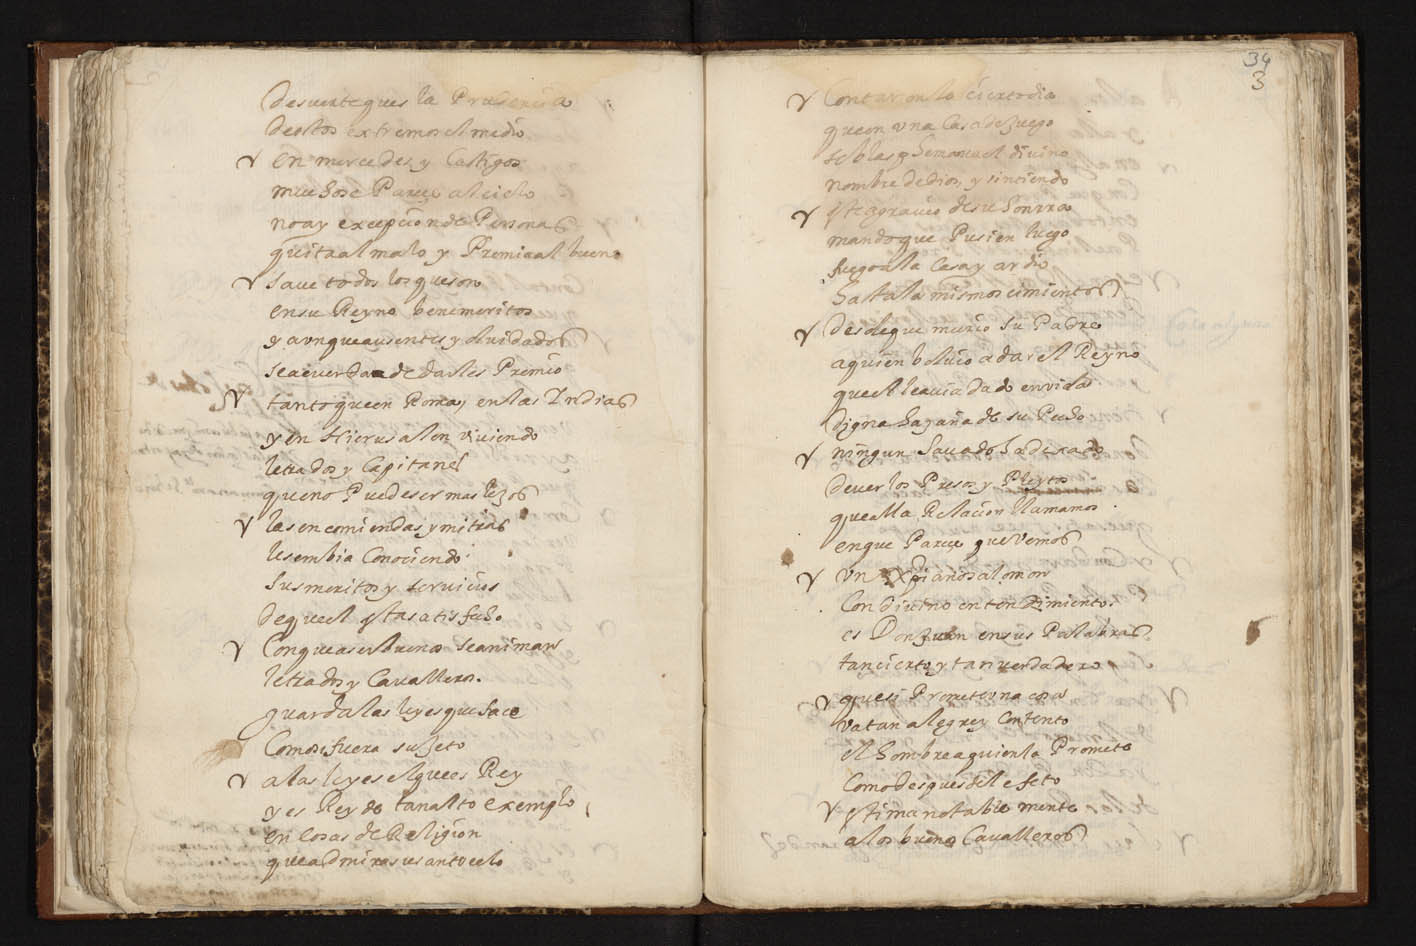 desuerte ques la Prudencia
destos extremos el medio
en mercedes y Castigos
mucho se Parece al cielo
no ay excepcion de Personas
q̃uita al malo y Premia al bueno
saue todos los que son
en su Reyno benemeritos
y aunque ausentes y oluidados
se acuerda de darles Premio
tanto que en Roma, en las Indias
y en Hierusalen viuiendo
letrados y Capitanes
que no Puede ser mas lejos
las encomiendas y mitras
les embia Conociendo
sus meritos y seruicios
de que el esta satisfecho
Con que a ser buenos se animan
letrados y Caualleros.
guarda las leyes que hace
Como si fuera sujeto
a las leyes el que es Rey
y es Rey de tan alto exemplo
en Cosas de Religion
que admira su santo celo
34
3
Contaronle cierto dia
que en vna Casa de Juego
se blasphemaua el diuino
nombre de Dios, y sintiendo
este agrauio de su honrra
mando que Pusien luego
fuego a la Casa y ardio
hasta la mismos cimientos
desde que murio su Padre
a quien boluio a dar el Reyno
que el le auia dado en vida
digna hazaña de su Pecho
ningun Sauado ha dexado
de ver los Presos y Pleytos
que alla Relacion llamamos
en que Parece que Vemos
Vn Xpiano salomon
Con diuino entendimiento.
es Don Juan en sus Palabras
tan cierto y tan verdadero
que si Promete vna cosa
va tan alegre y Contento
el hombre a quien la Promete
Como despues del efeto
estima notable mente
a los buenos Caualleros